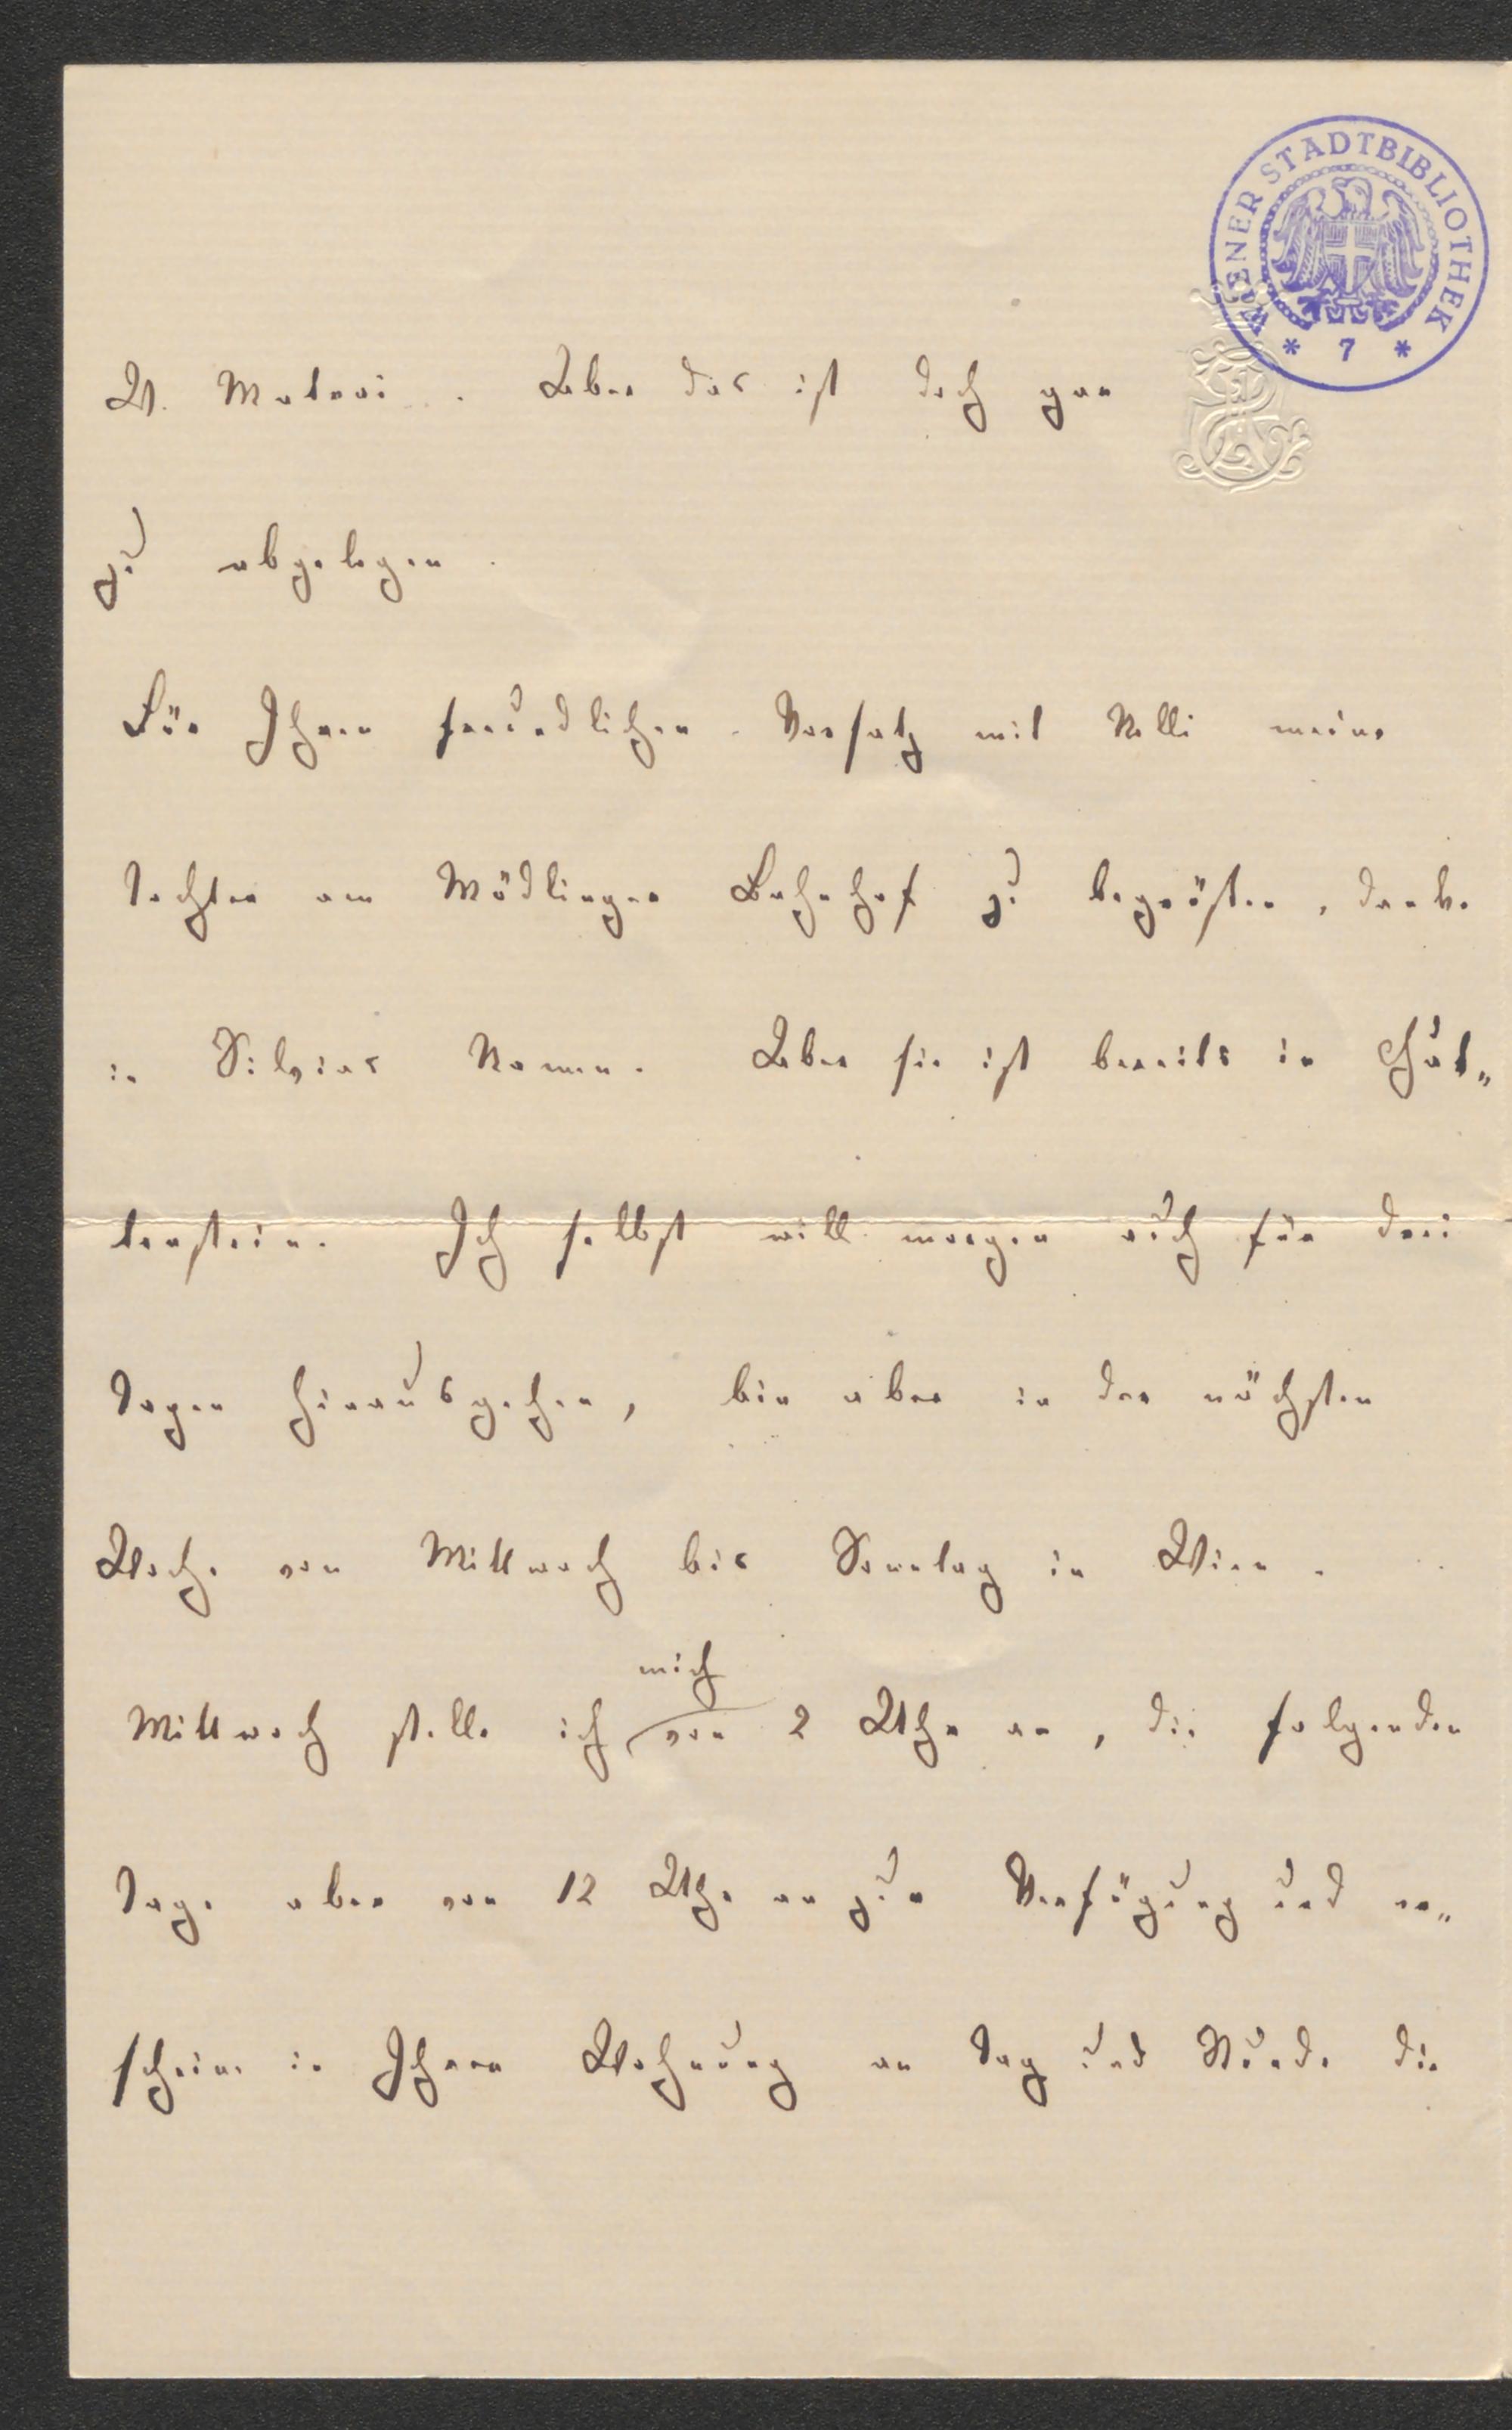 WIENER STADTBIBLIOTHEK
* 7 *
W. Matrei. Aber das ist doch gar
zu abgelegen.
Für Ihren freundlichen Vorsatz mit Nelli meine
Tochter am Mödlinger Bahnhof zu begrüßen, danke
in Silvias Namen. Aber sie ist bereits in Gut„
tenstein. Ich selbst will morgen auch für drei
Tagen hinausgehen, bin aber in der nächsten
Woche von Mittwoch bis Sonntag in Wien.
mich
Mittwoch stelle ich von 2 Uhr an, die folgenden
Tage aber von 12 Uhr an zur Verfügung und er„
scheine in Ihrer Wohnung an Tag und Stunde die